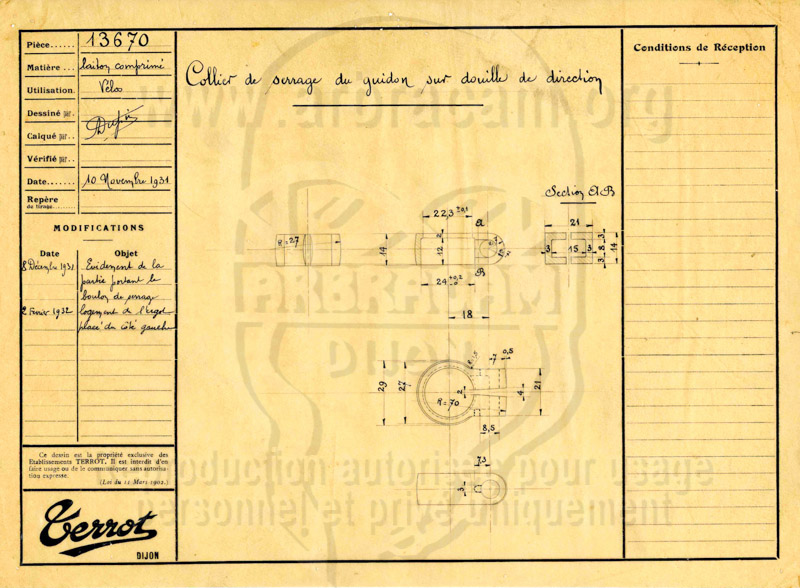 Pièce...... 13670
Matière... laiton comprimé
Utilisation. Vélos
Dessiné par.
Calqué par..
Vérifié par..
Date....... 10 Novembre 1931
Repère
de tirage
MODIFICATIONS
Date Objet
8 Décembre 1931 Evidement de la
partie portant le
boulon de serrage
2 Février 1932 logement de l'ergot
placé du côté gauche
Ce dessin est la propriété exclusive des
Etablissements TERROT. Il est interdit d'en
faire usage ou de le communiquer sans autorisa-
tion expresse.
(Loi du 11 Mars 1902.)
Terrot
DIJON
Collier de serrage du guidon sur douille de direction
Conditions de Réception
Section A.B
22,3 ±0,1
A
21
R = 27
14
2
12
3 15 3
3 8 3
14
B
24 +0,2 -0
18
7 0,5
29
27
2
R = 70
4
21
8,5
7,5
3
www.arbracam.org
ARBRACAM
DIJON
Reproduction autorisée pour usage
personnel et privé uniquement